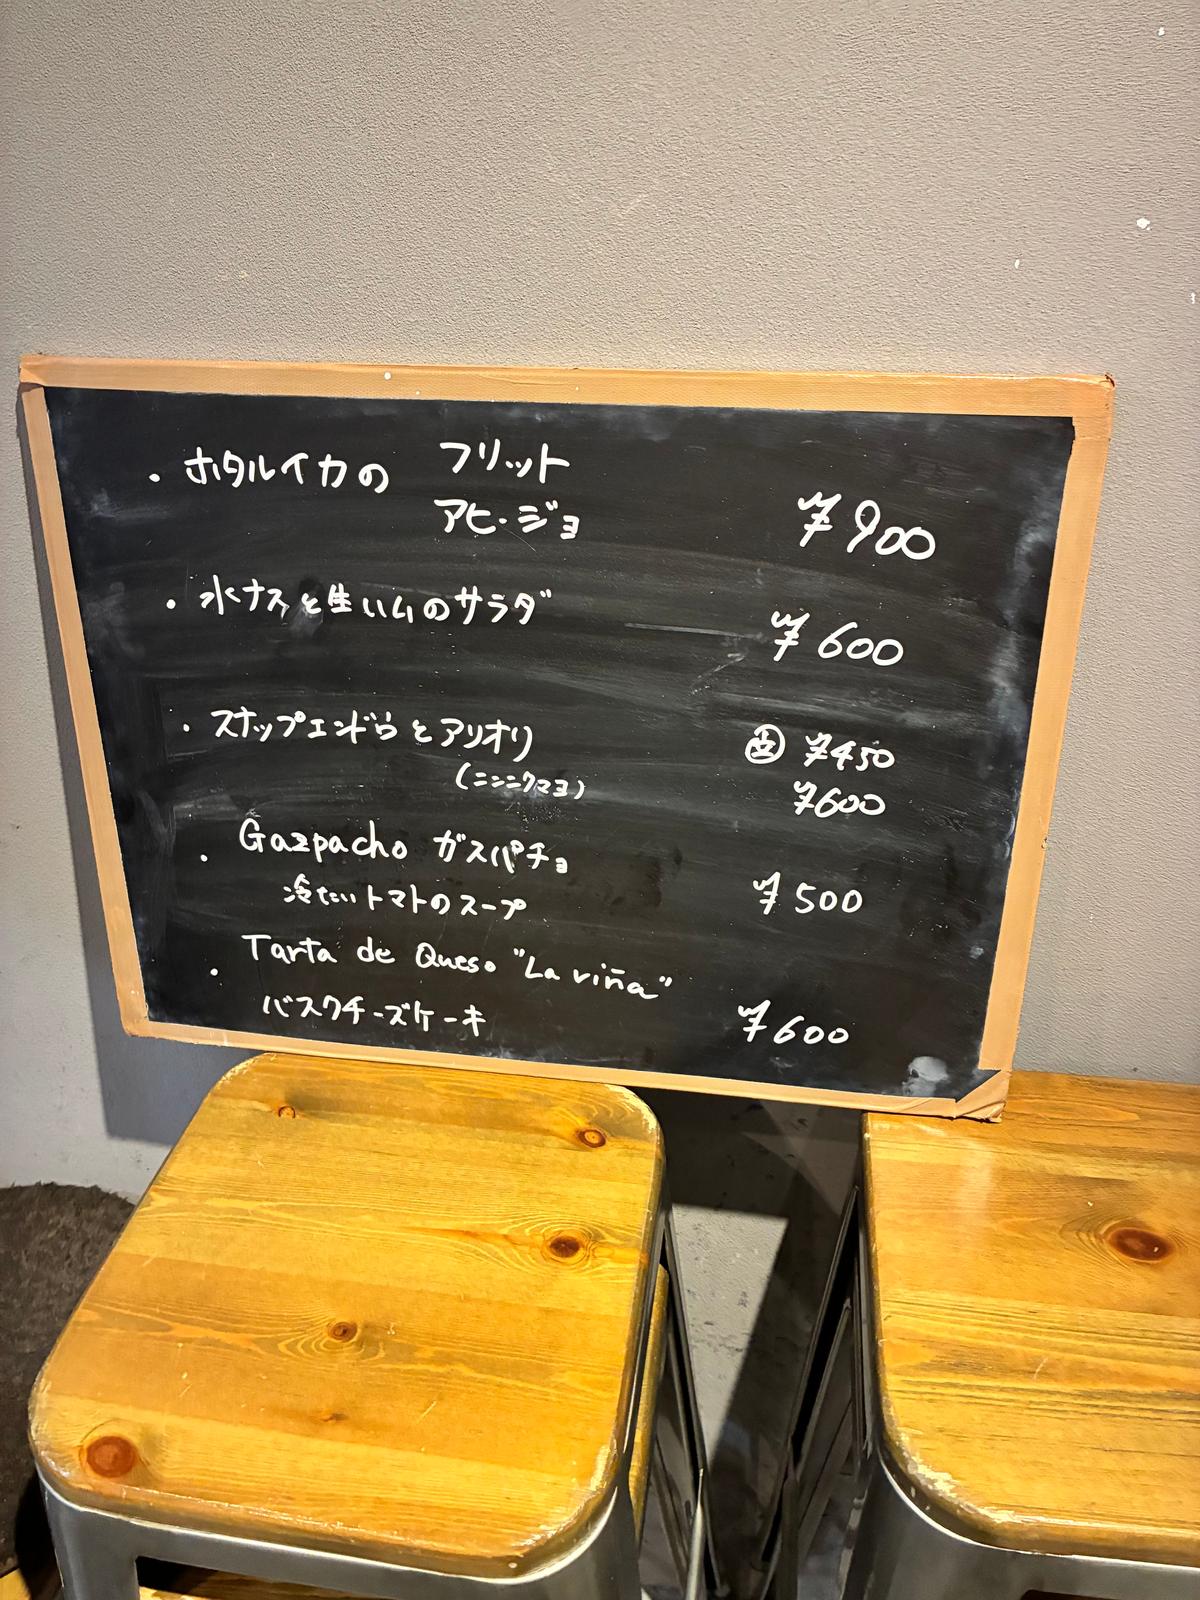 ・ホタルイカの フリット
アヒージョ ¥900
・水ナスと生ハムのサラダ ¥600
・スナップエンドウとアリオリ ¥450
(ニンニクマヨ) ¥600
・Gazpacho ガスパチョ
冷たいトマトのスープ ¥500
・Tarta de Queso "La viña"
バスクチーズケーキ ¥600